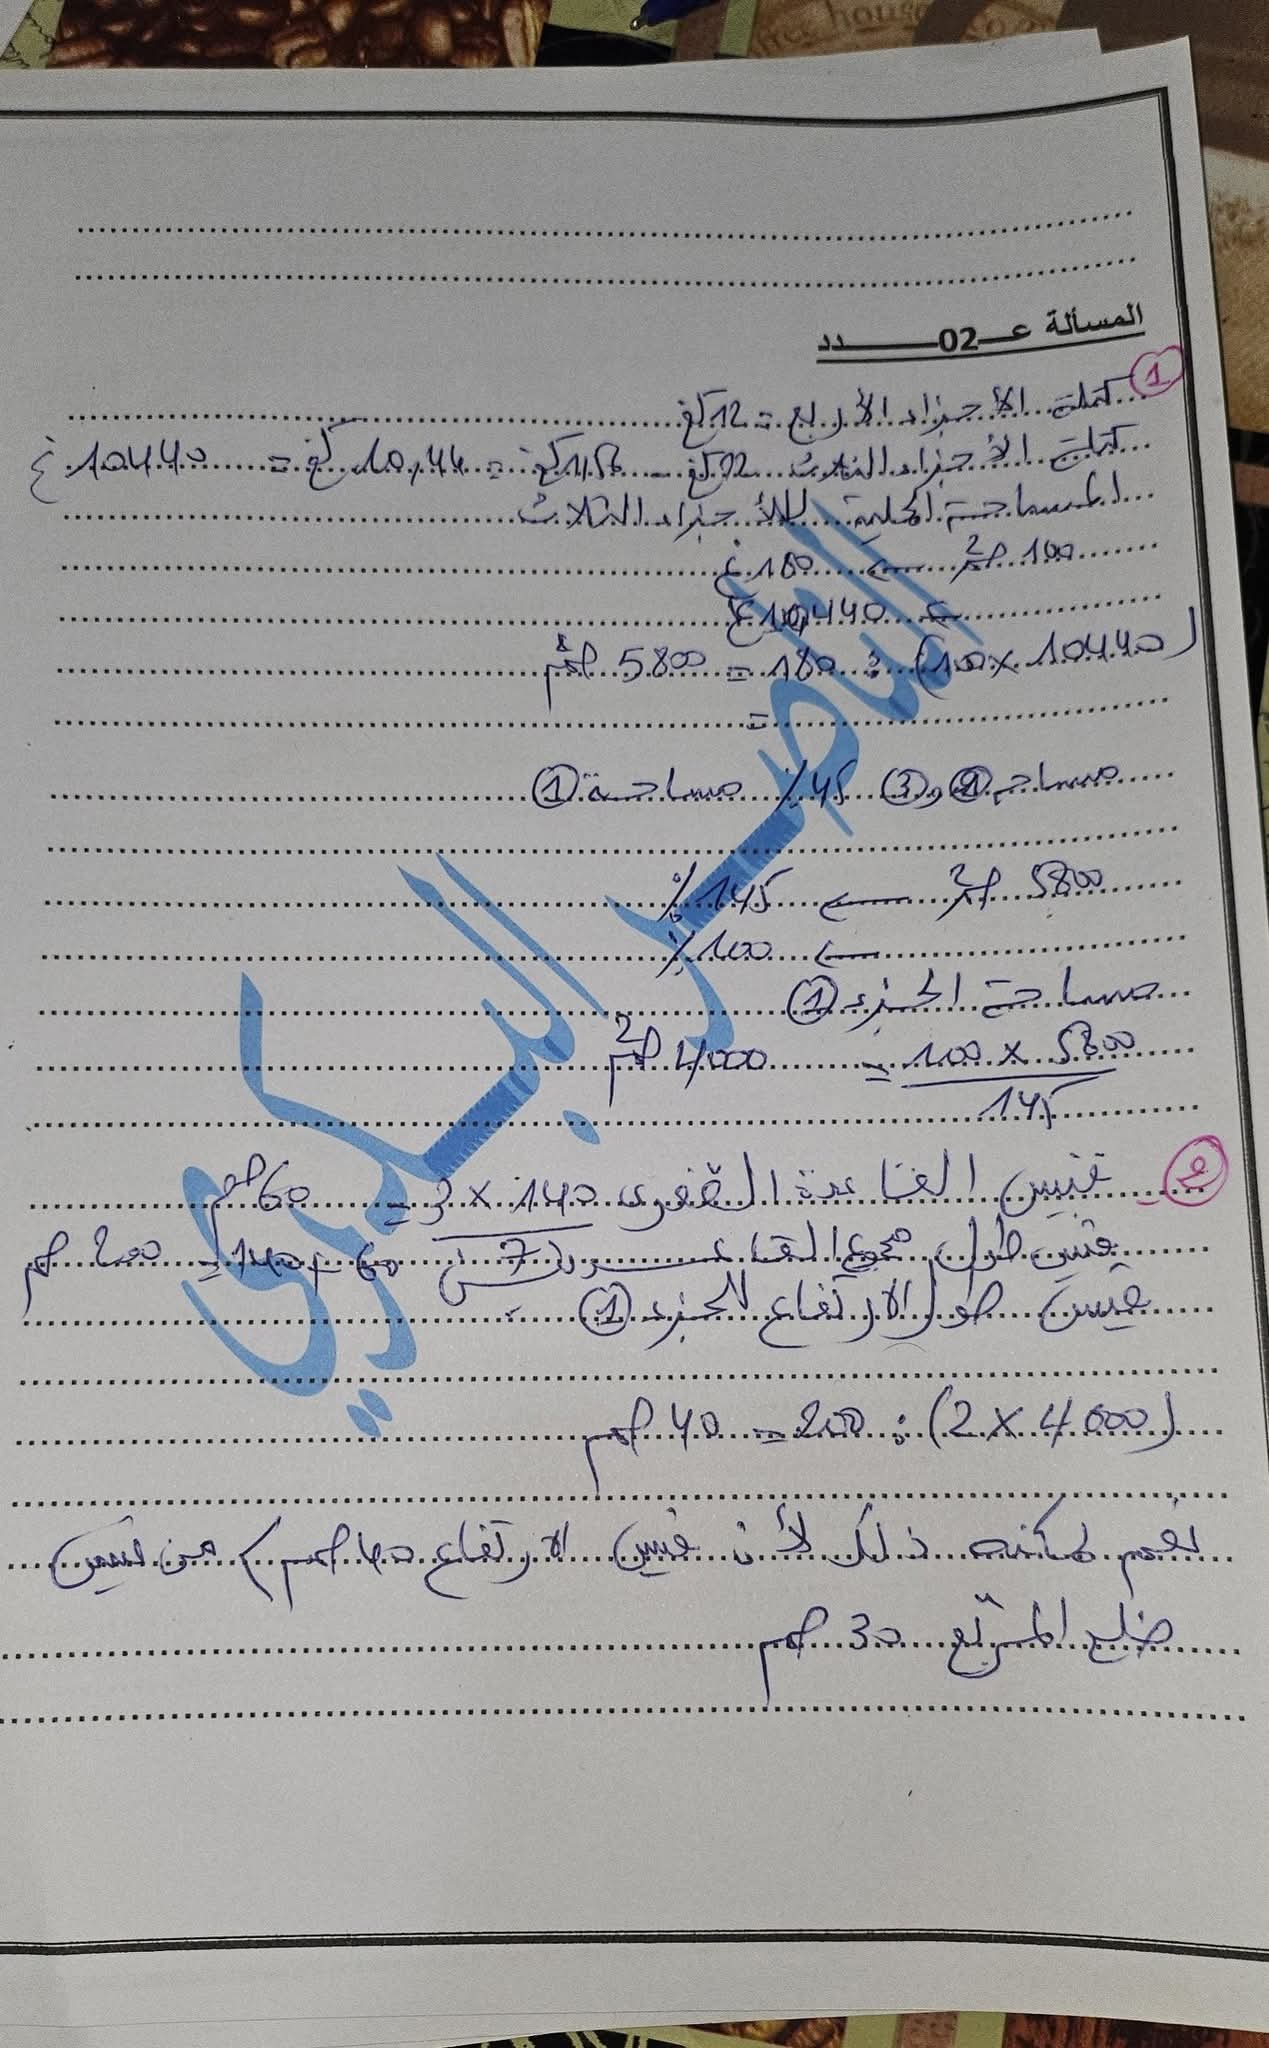 المسألة عـــ02ـــــدد
① كتلة الأجزاء الأربع = 12كغ
كتلة الأجزاء الثلاث 22كغ - 11,56كغ = 10,44كغ = 10440غ
المساحة الجملية للأجزاء الثلاث
100 صم² ← 180غ
← 10440غ
(10440 × 100) : 180 = 5800 صم²
=
مساحة ② و ③ 45٪ مساحة ①
5800 صم² ← 145٪
← 100٪
مساحة الجزء ①
5800 × 100 = 4000 صم²
145
② قيس القاعدة الصغرى 140 × 3 = 60صم
7
قيس طول مجموع القاعدتين 60 + 140 = 200 صم
قيس طول الارتفاع للجزء ①
(4000 × 2) : 200 = 40 صم
نعم يمكنه ذلك لأن قيس الارتفاع 40 صم > من قيس
ضلع المربّع 30 صم
الناصر البكري
house